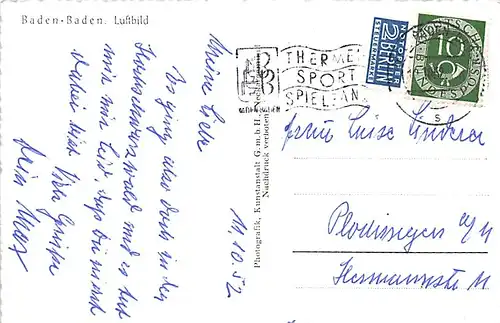 Baden-Baden. Luftbild
11.10.52
Meine Liebe
Es ging also doch in den
Hochschwarzwald und es tut
mir nur Leid, daß Du nicht
dabei bist. Viele Grüße
Dein Max
Photografik, Kunstanstalt G.m.b.H.
Nachdruck verboten
BADEN-BADEN
THERMEN
SPORT
SPIELBANK
NOTOPFER
2 BERLIN
STEUERMARKE
DEUTSCHE BUNDESPOST
10
Frau Luise Linderer
Plochingen a/N
Hermannstr 11